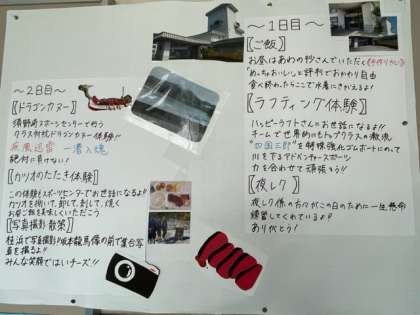 ～1日目～
〖ご飯〗
お昼はあわの抄さんでいただく手作りカレー
"めっちゃおいしい"と評判でおかわり自由
食べ終わたらここで水着にきがえるよ!
〖ラフティング体験〗
ハッピーラフトさんにお世話になるよ!!
チームで世界的にもトップクラスの激流
"四国三郎"を特殊強化ゴムボートにのって
川を下るアドベンチャースポーツ
力を合わせて頑張ろう!!
〖夜レク〗
夜レク係の方々がこの日のために一生懸命
練習してくれているよ♪
ありがとう!
～2日目～
〖ドラゴンカヌー〗
須崎スポーツセンターで行う
クラス対抗ドラゴンカヌー体験!!
疾風迅雷 一漕入魂
絶対に負けない!
〖カツオのたたき体験〗
この体験もスポーツセンターでお世話になるよ!!
カツオを捌いて、卸して、刺して、焼く
お昼ご飯を美味しくいただこう
〖写真撮影 散策〗
桂浜で写真撮影!!坂本龍馬像の前で集合写
真を撮るよ!!
みんな笑顔ではいチーズ!!